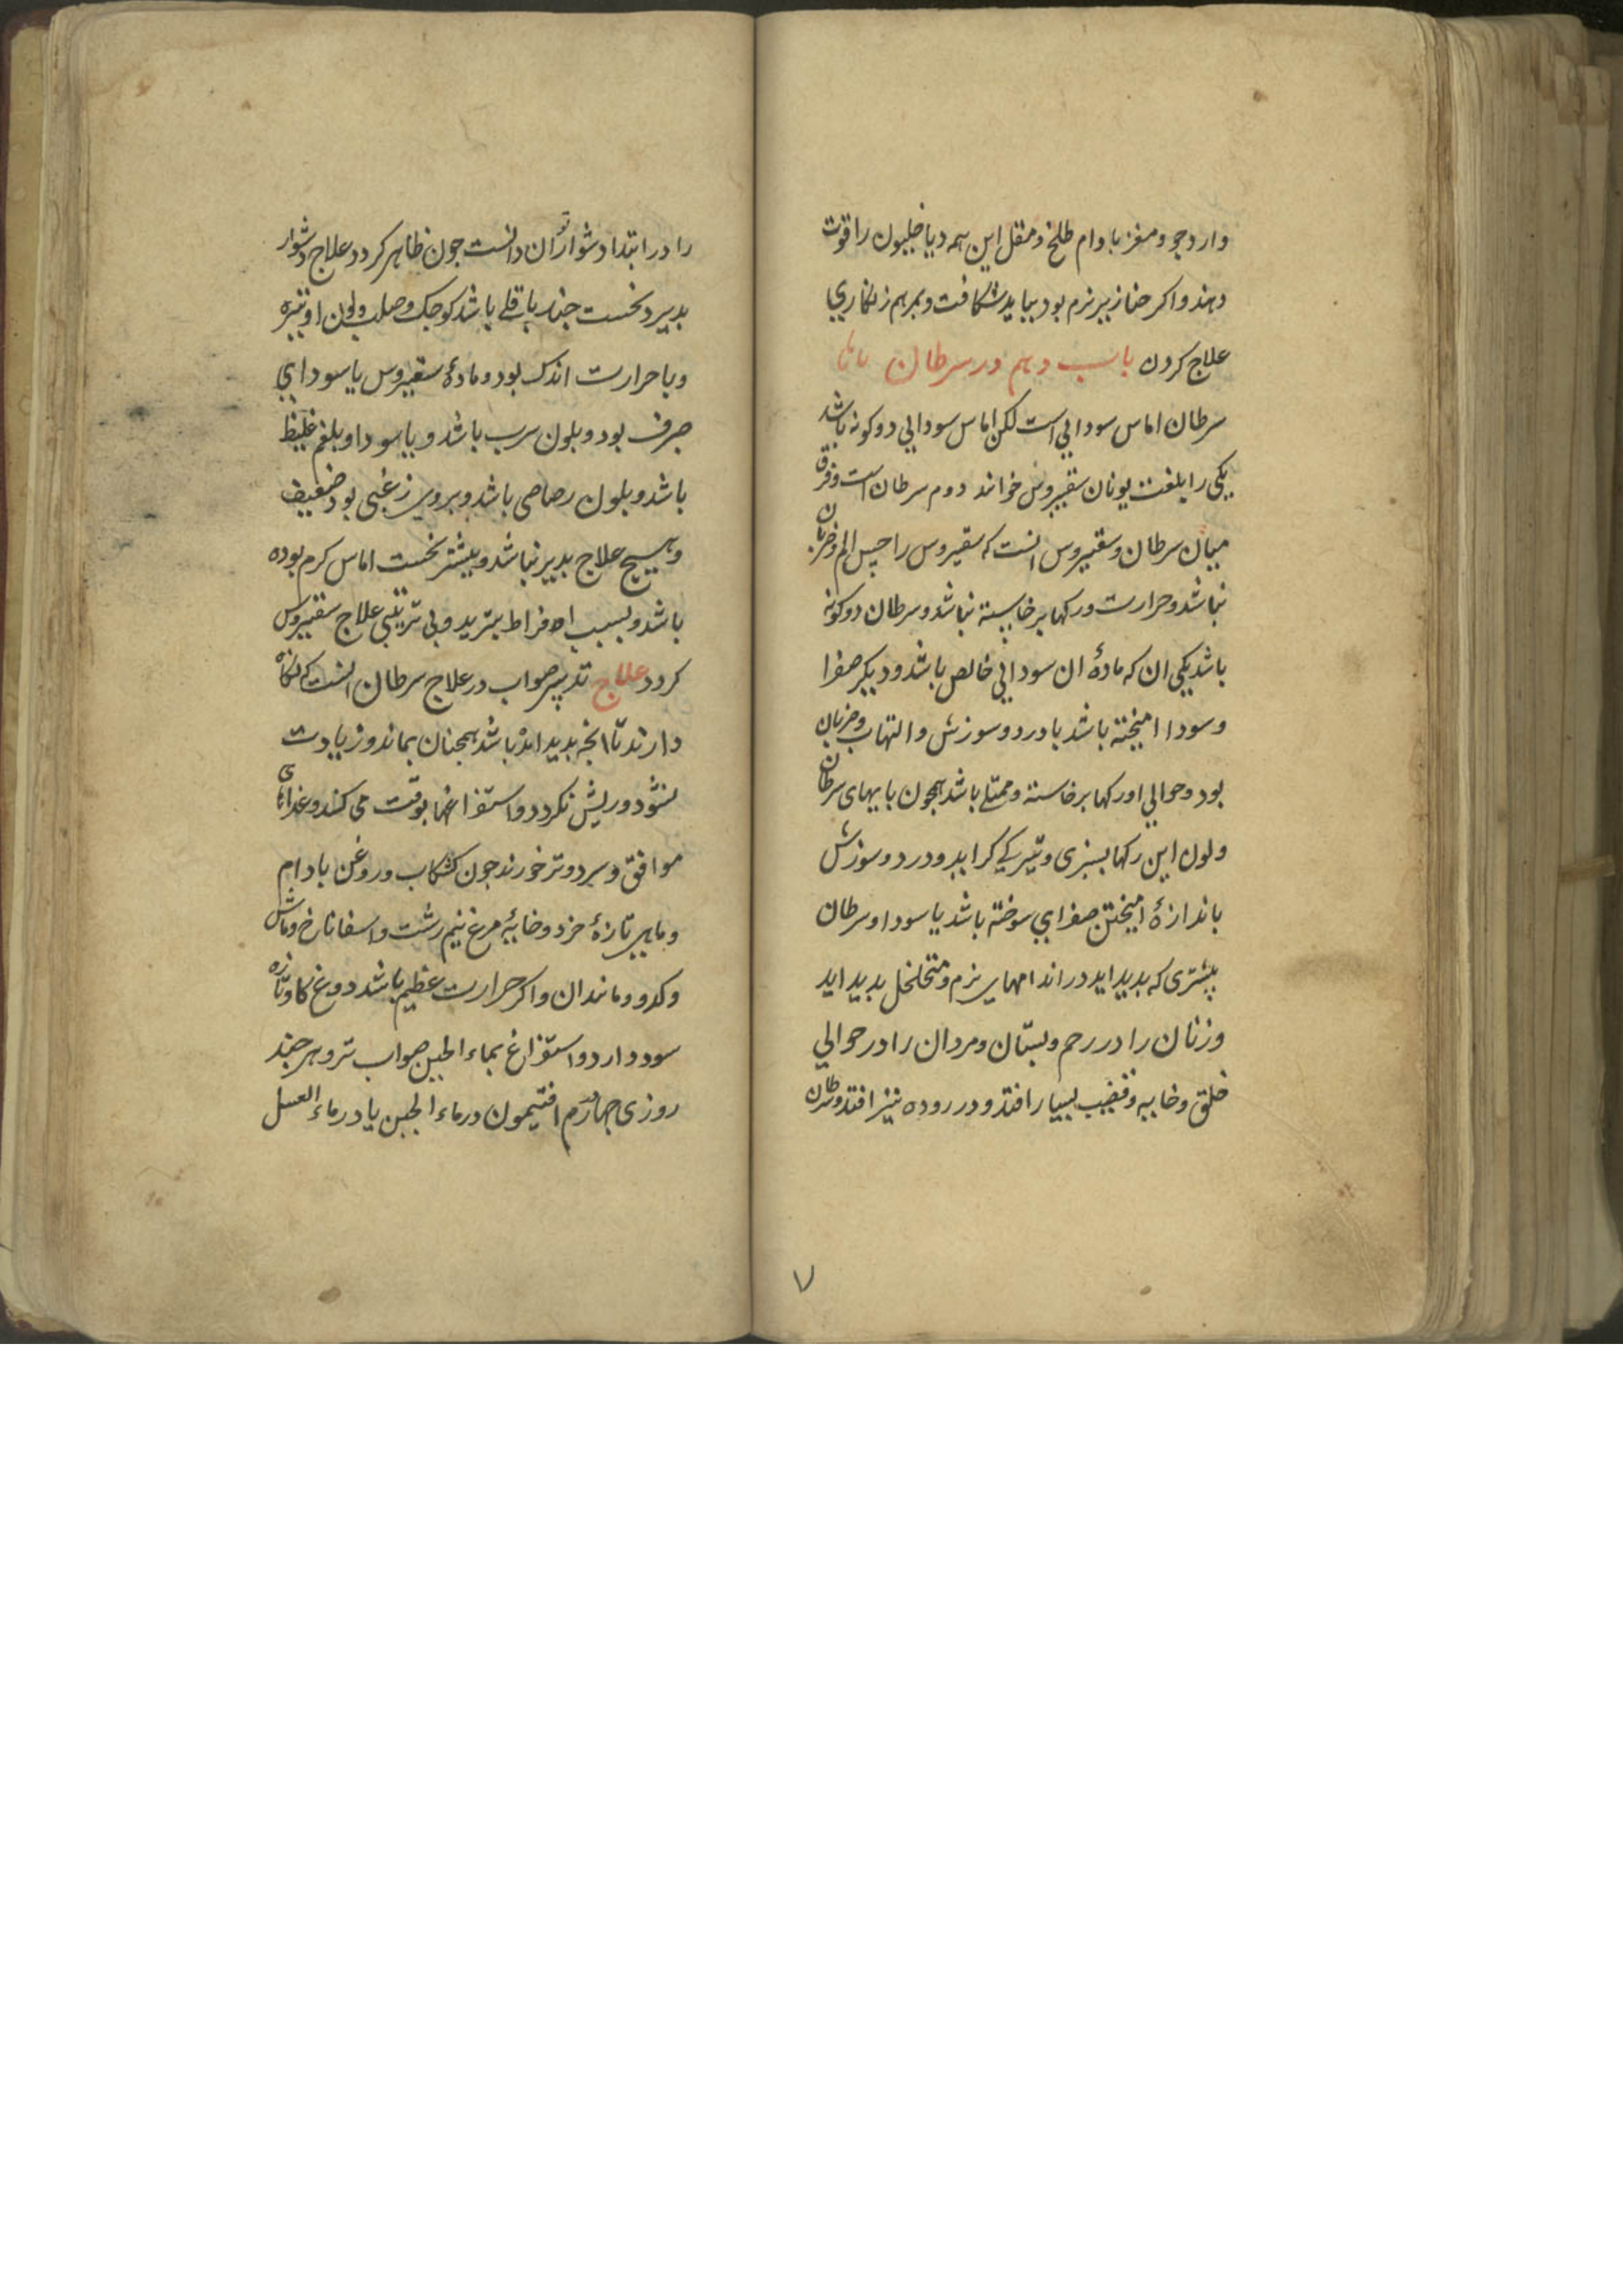 وارد جو و مغز بادام طلخ و مقل این همه دیاخیلیون را قوت
دهند و اکر خنازیر نرم بود بباید شکافت و بمرهم زنکاری
علاج کردن باب دهم در سرطان
سرطان اماس سودایی است لکن اماس سودایی دو کونه باشد
یکی را بلغت یونان سقیروس خوانند دوم سرطان است و فرق
میان سرطان و سقیروس انست که سقیروس را حس الم و ضربان
نباشد و حرارت و رکها برخاسته نباشد و سرطان دو کونه
باشد یکی ان که مادهٔ ان سودایی خالص باشد و دیکر صفرا
و سودا امیخته باشد با درد و سوزش و التهاب و ضربان
بود و حوالی او رکها برخاسته و ممتلی باشد همچون پایهای سرطان
و لون این رکها بسبزی و تیرکی کراید و درد و سوزش
باندازهٔ امیختن صفرای سوخته باشد با سودا و سرطان
بیشتری که بدید اید در اندامهای نرم و متخلخل بدید اید
و زنان را در رحم و پستان و مردان را در حوالی
حلق و خایه و قضیب بسیار افتد و در روده نیز افتد و سرطان
۷
را در ابتدا دشوار توان دانست جون ظاهر کردد علاج دشوار
بدیرد نخست جند باقلی باشد کوجک و صلب و لون او تیره
و با حرارت اندک بود و مادهٔ سقیروس یا سودایی
صرف بود و بلون سرب باشد و یا سودا و بلغم غلیظ
باشد و بلون رصاصی باشد و بروی زغبی بود ضعیف
و هیچ علاج بدیر نباشد و بیشتر نخست اماس کرم بوده
باشد و بسبب افراط تبرید و بی ترتیبی علاج سقیروس
کردد علاج تدبیر صواب در علاج سرطان انست که نکاه
دارند تا انجه بدید امد باشد همجنان بماند و زیادت
نشود و ریش نکردد و استفراغها بوقت می کنند و غذاهای
موافق و سرد و تر خورند جون کشکاب و روغن بادام
و ماهی تازهٔ خرد و خایهٔ مرغ نیم رشت و اسفاناخ و ماش
و کدو و مانند ان و اکر حرارت عظیم باشد دوغ کاو تازه
سود دارد و استفراغ بماء الجبن صواب تر و هر جند
روزی جهار درم افتیمون در ماء الجبن یا در ماء العسل